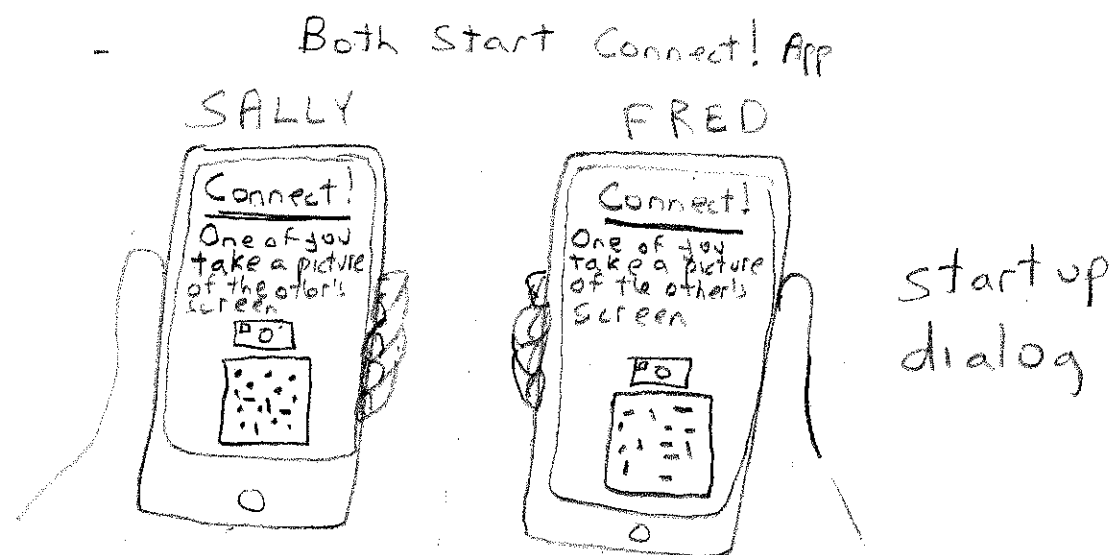 - Both Start Connect! App
SALLY
FRED
Connect!
One of you
take a picture
of the other's
screen
Connect!
One of you
take a picture
of the other's
screen
startup
dialog